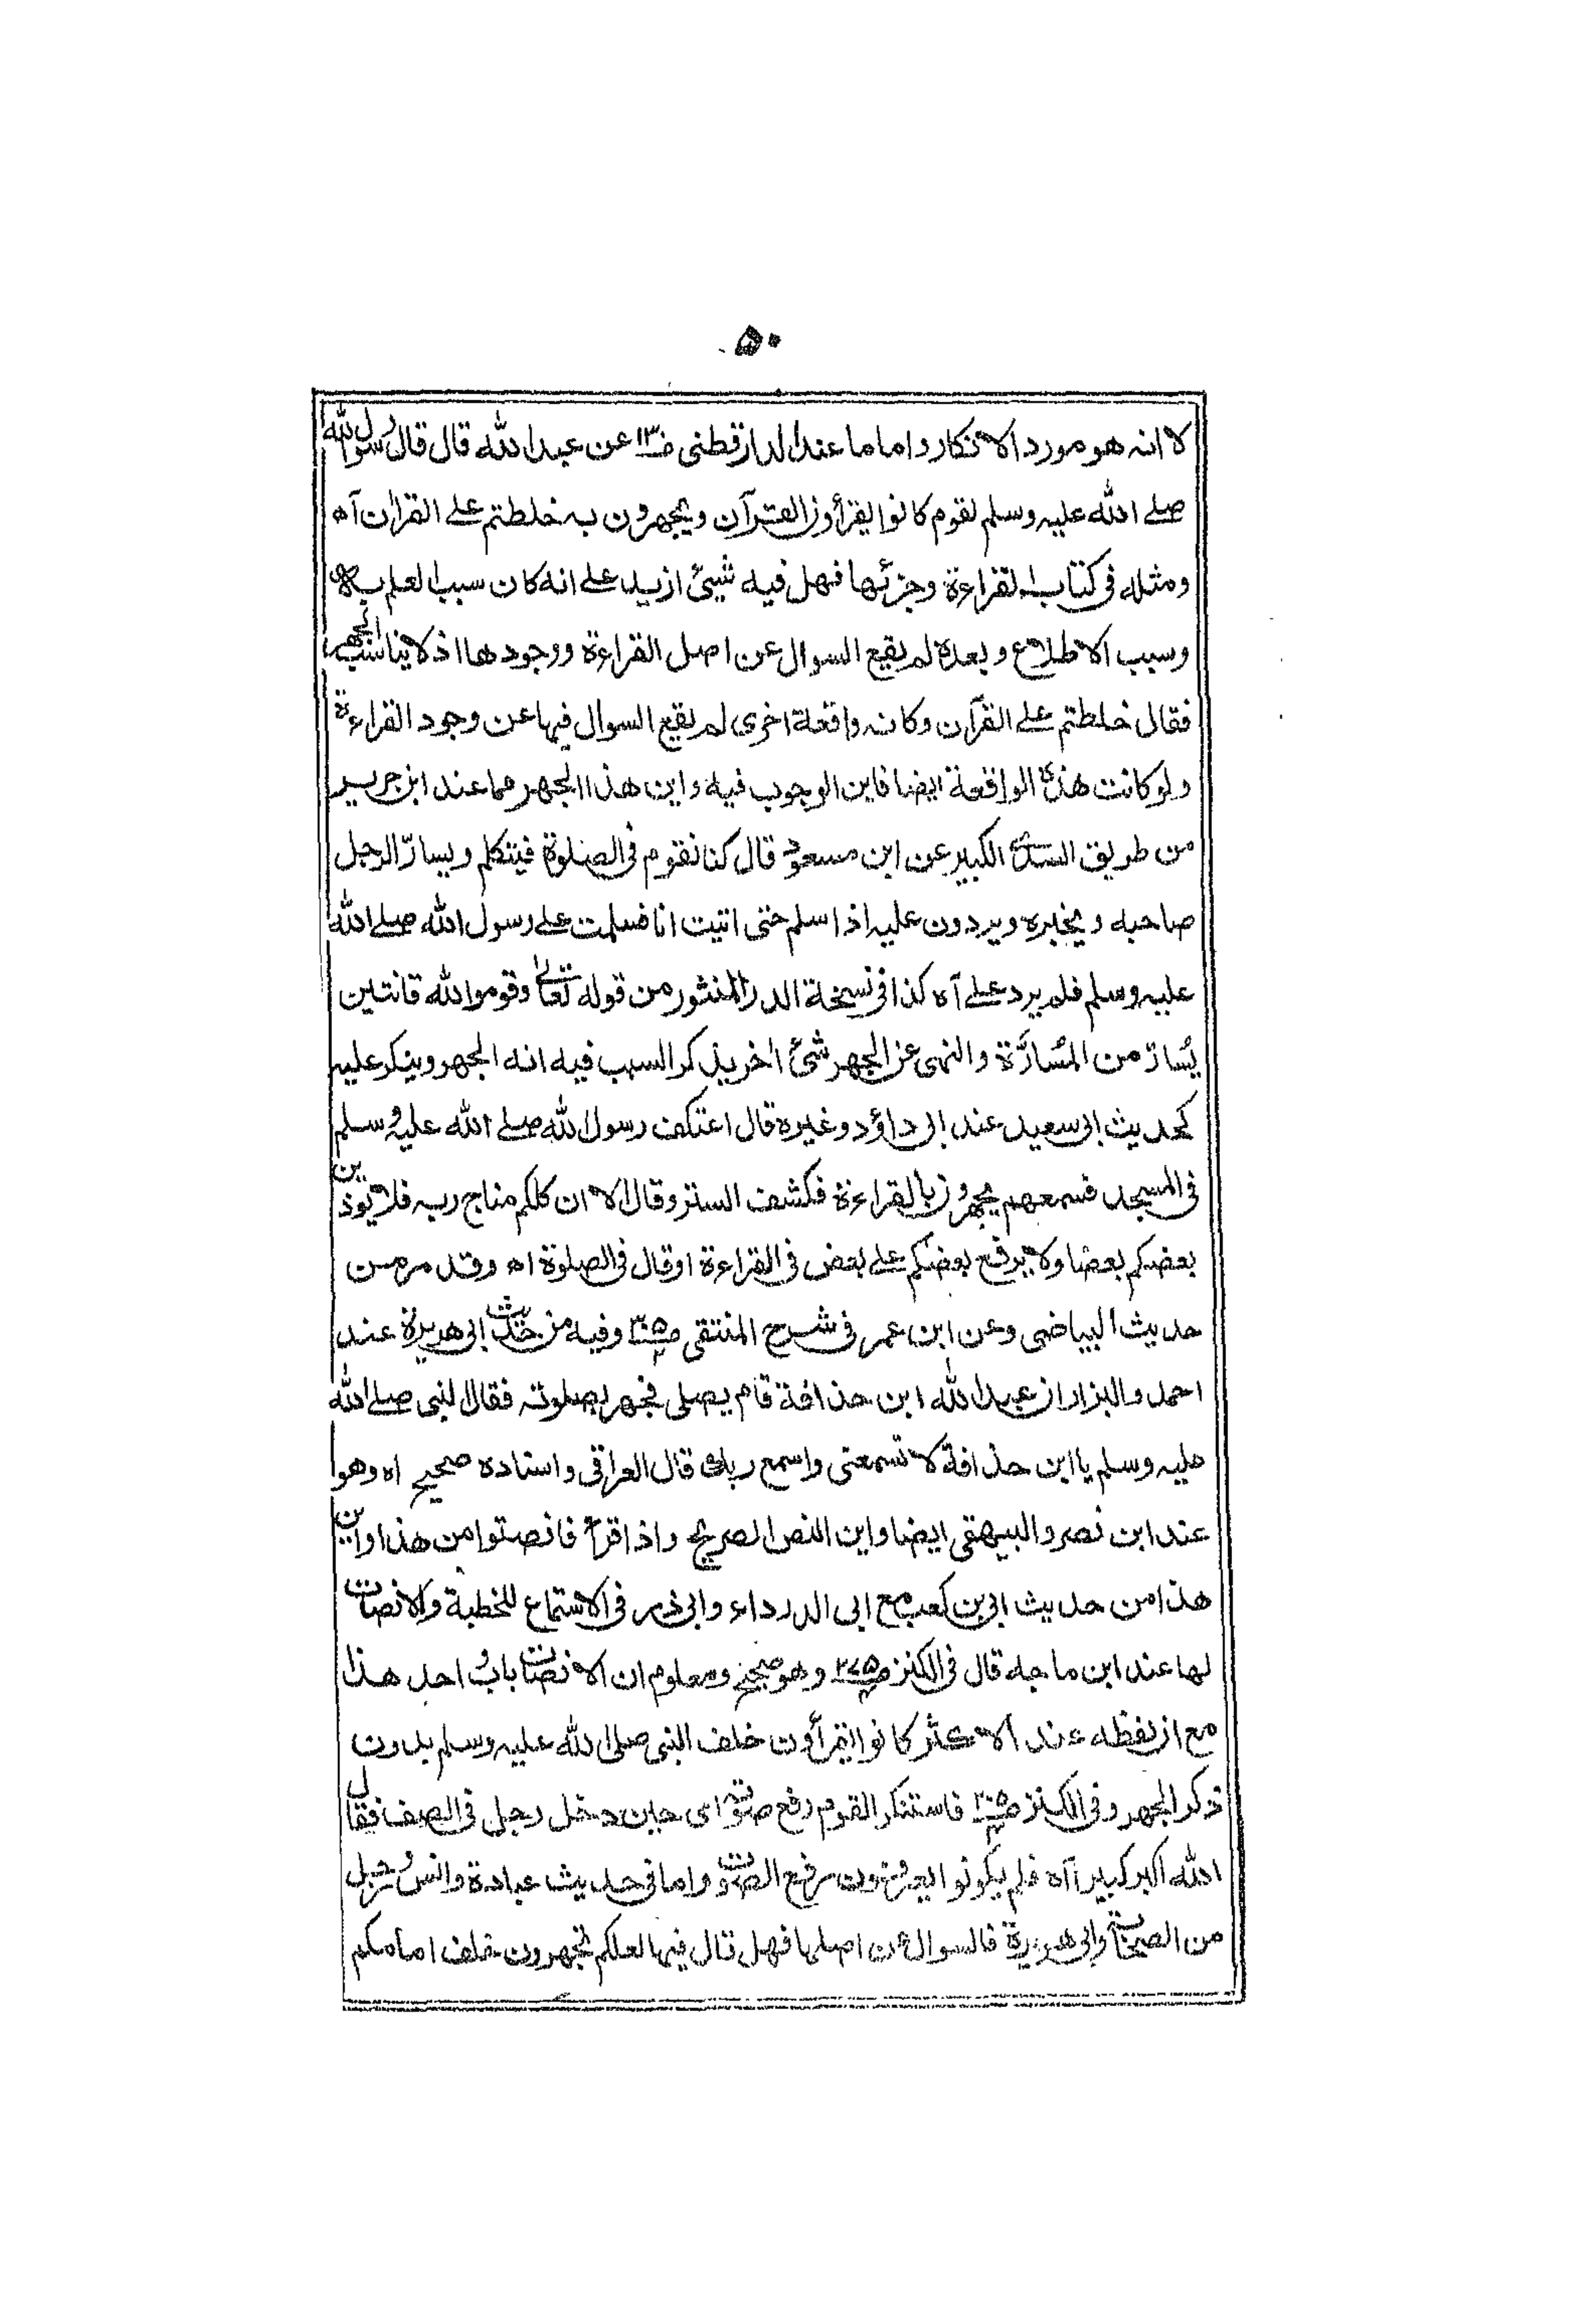 ۵۰
لا انه هو مورد الانكار واما ما عند الدارقطنى عن عبد الله قال قال رسول الله
صلے الله عليه وسلم لقوم كانوا يقرأون القرآن ويجهرون به خلطتم علے القرآن آه
ومثله فى كتاب القراءة وجزئها فهل فيه شيئ ازيد علے انه كان سبب العلم به
وسبب الاطلاع وبعده لم يقع السوال عن اصل القراءة ووجودها اذ لا يناسب الجهر
فقال خلطتم علے القرآن وكانه واقعة اخرى لم يقع السوال فيها عن وجود القراءة
ولو كانت هذه الواقعة ايضا فاين الوجوب فيه واين هذا الجهر مما عند ابن جرير
من طريق السدى الكبير عن ابن مسعود قال كنا نقوم فى الصلوة فيتكلم ويسارّ الرجل
صاحبه ويخبره ويردون عليه اذا سلم حتى اتيت انا فسلمت علے رسول الله صلے الله
عليه وسلم فلم يرد علے آه كذا فى نسخة الدر المنثور من قوله تعالے وقوموا لله قانتين
يُسارّ من المُسارَّة والنهى عن الجهر شئ اخر يذكر السبب فيه انه الجهر وينكر عليه
كحديث ابى سعيد عند ابى داؤد وغيره قال اعتكف رسول الله صلے الله عليه وسلم
فى المسجد فسمعهم يجهرون بالقراءة فكشف الستر وقال الا ان كلكم مناج ربه فلا يوذين
بعضكم بعضا ولا يرفع بعضكم علے بعض فى القراءة او قال فى الصلوة اه وقد مر من
حديث البياضى وعن ابن عمر فى شرح المنتقى وفيه من حديث ابى هريرة عند
احمد والبزار ان عبد الله ابن حذافة قام يصلى فجهر بصلوته فقال النبى صلے الله
عليه وسلم يا ابن حذافة لا تسمعنى واسمع ربك قال العراقى واسناده صحيح اه وهو
عند ابن نصر والبيهقى ايضا واين النص الصريح واذا قرأ فانصتوا من هذا واين
هذا من حديث ابى بن كعب مع ابى الدرداء وابى ذر فى الاستماع للخطبة والانصات
لها عند ابن ماجه قال فى الكنز وهو صحيح ومعلوم ان الانصات باب واحد هذا
مع ان لفظه عند الاكثر كانوا يقرأون خلف النبى صلى الله عليه وسلم بدون
ذكر الجهر وفى الكنز فاستنكر القوم رفع صوته اى حين دخل رجل فى الصف فقال
الله اكبر كبيرا آه فلم يكونوا يعرفون رفع الصوت واما فى حديث عبادة وانس ورجل
من الصحابة وابى هريرة فالسوال عن اصلها فهل قال فيها لعلكم تجهرون خلف امامكم